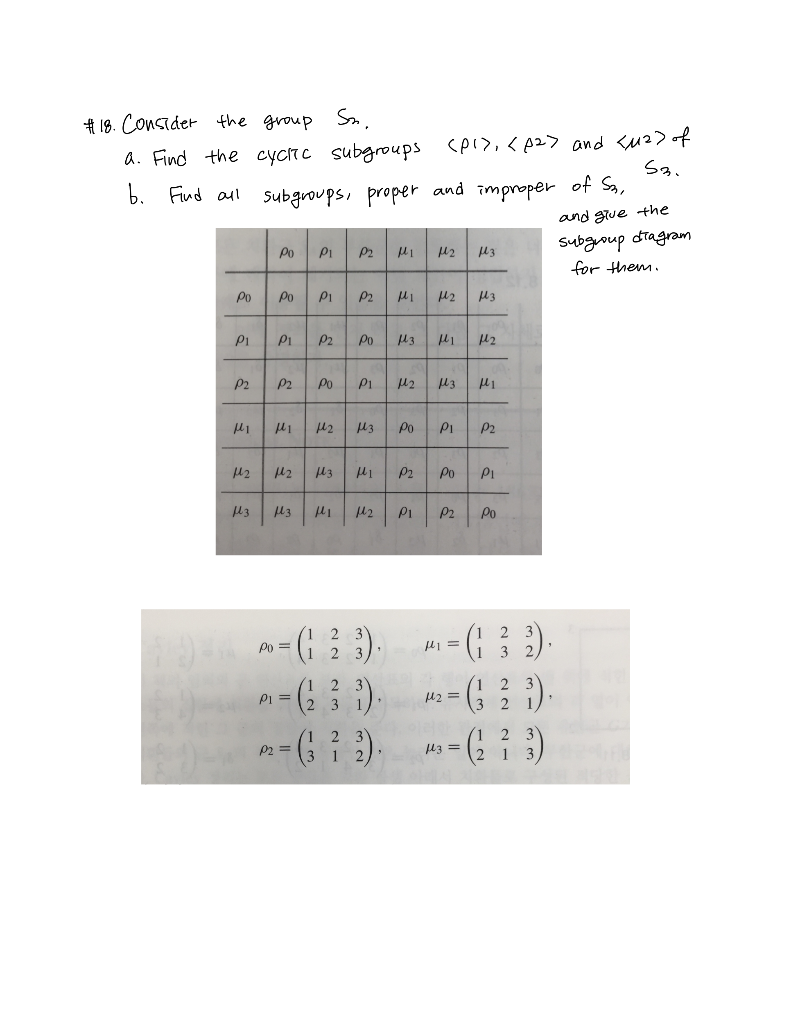 #18. Consider the group S₃.
a. Find the cyclic subgroups <ρ1>, <ρ2> and <μ2> of S₃.
b. Find all subgroups, proper and improper of S₃,
and give the
subgroup diagram
for them.
ρ0 ρ1 ρ2 μ1 μ2 μ3
ρ0 ρ0 ρ1 ρ2 μ1 μ2 μ3
ρ1 ρ1 ρ2 ρ0 μ3 μ1 μ2
ρ2 ρ2 ρ0 ρ1 μ2 μ3 μ1
μ1 μ1 μ2 μ3 ρ0 ρ1 ρ2
μ2 μ2 μ3 μ1 ρ2 ρ0 ρ1
μ3 μ3 μ1 μ2 ρ1 ρ2 ρ0
ρ0 = (1 2 3
1 2 3), μ1 = (1 2 3
1 3 2),
ρ1 = (1 2 3
2 3 1), μ2 = (1 2 3
3 2 1),
ρ2 = (1 2 3
3 1 2), μ3 = (1 2 3
2 1 3)